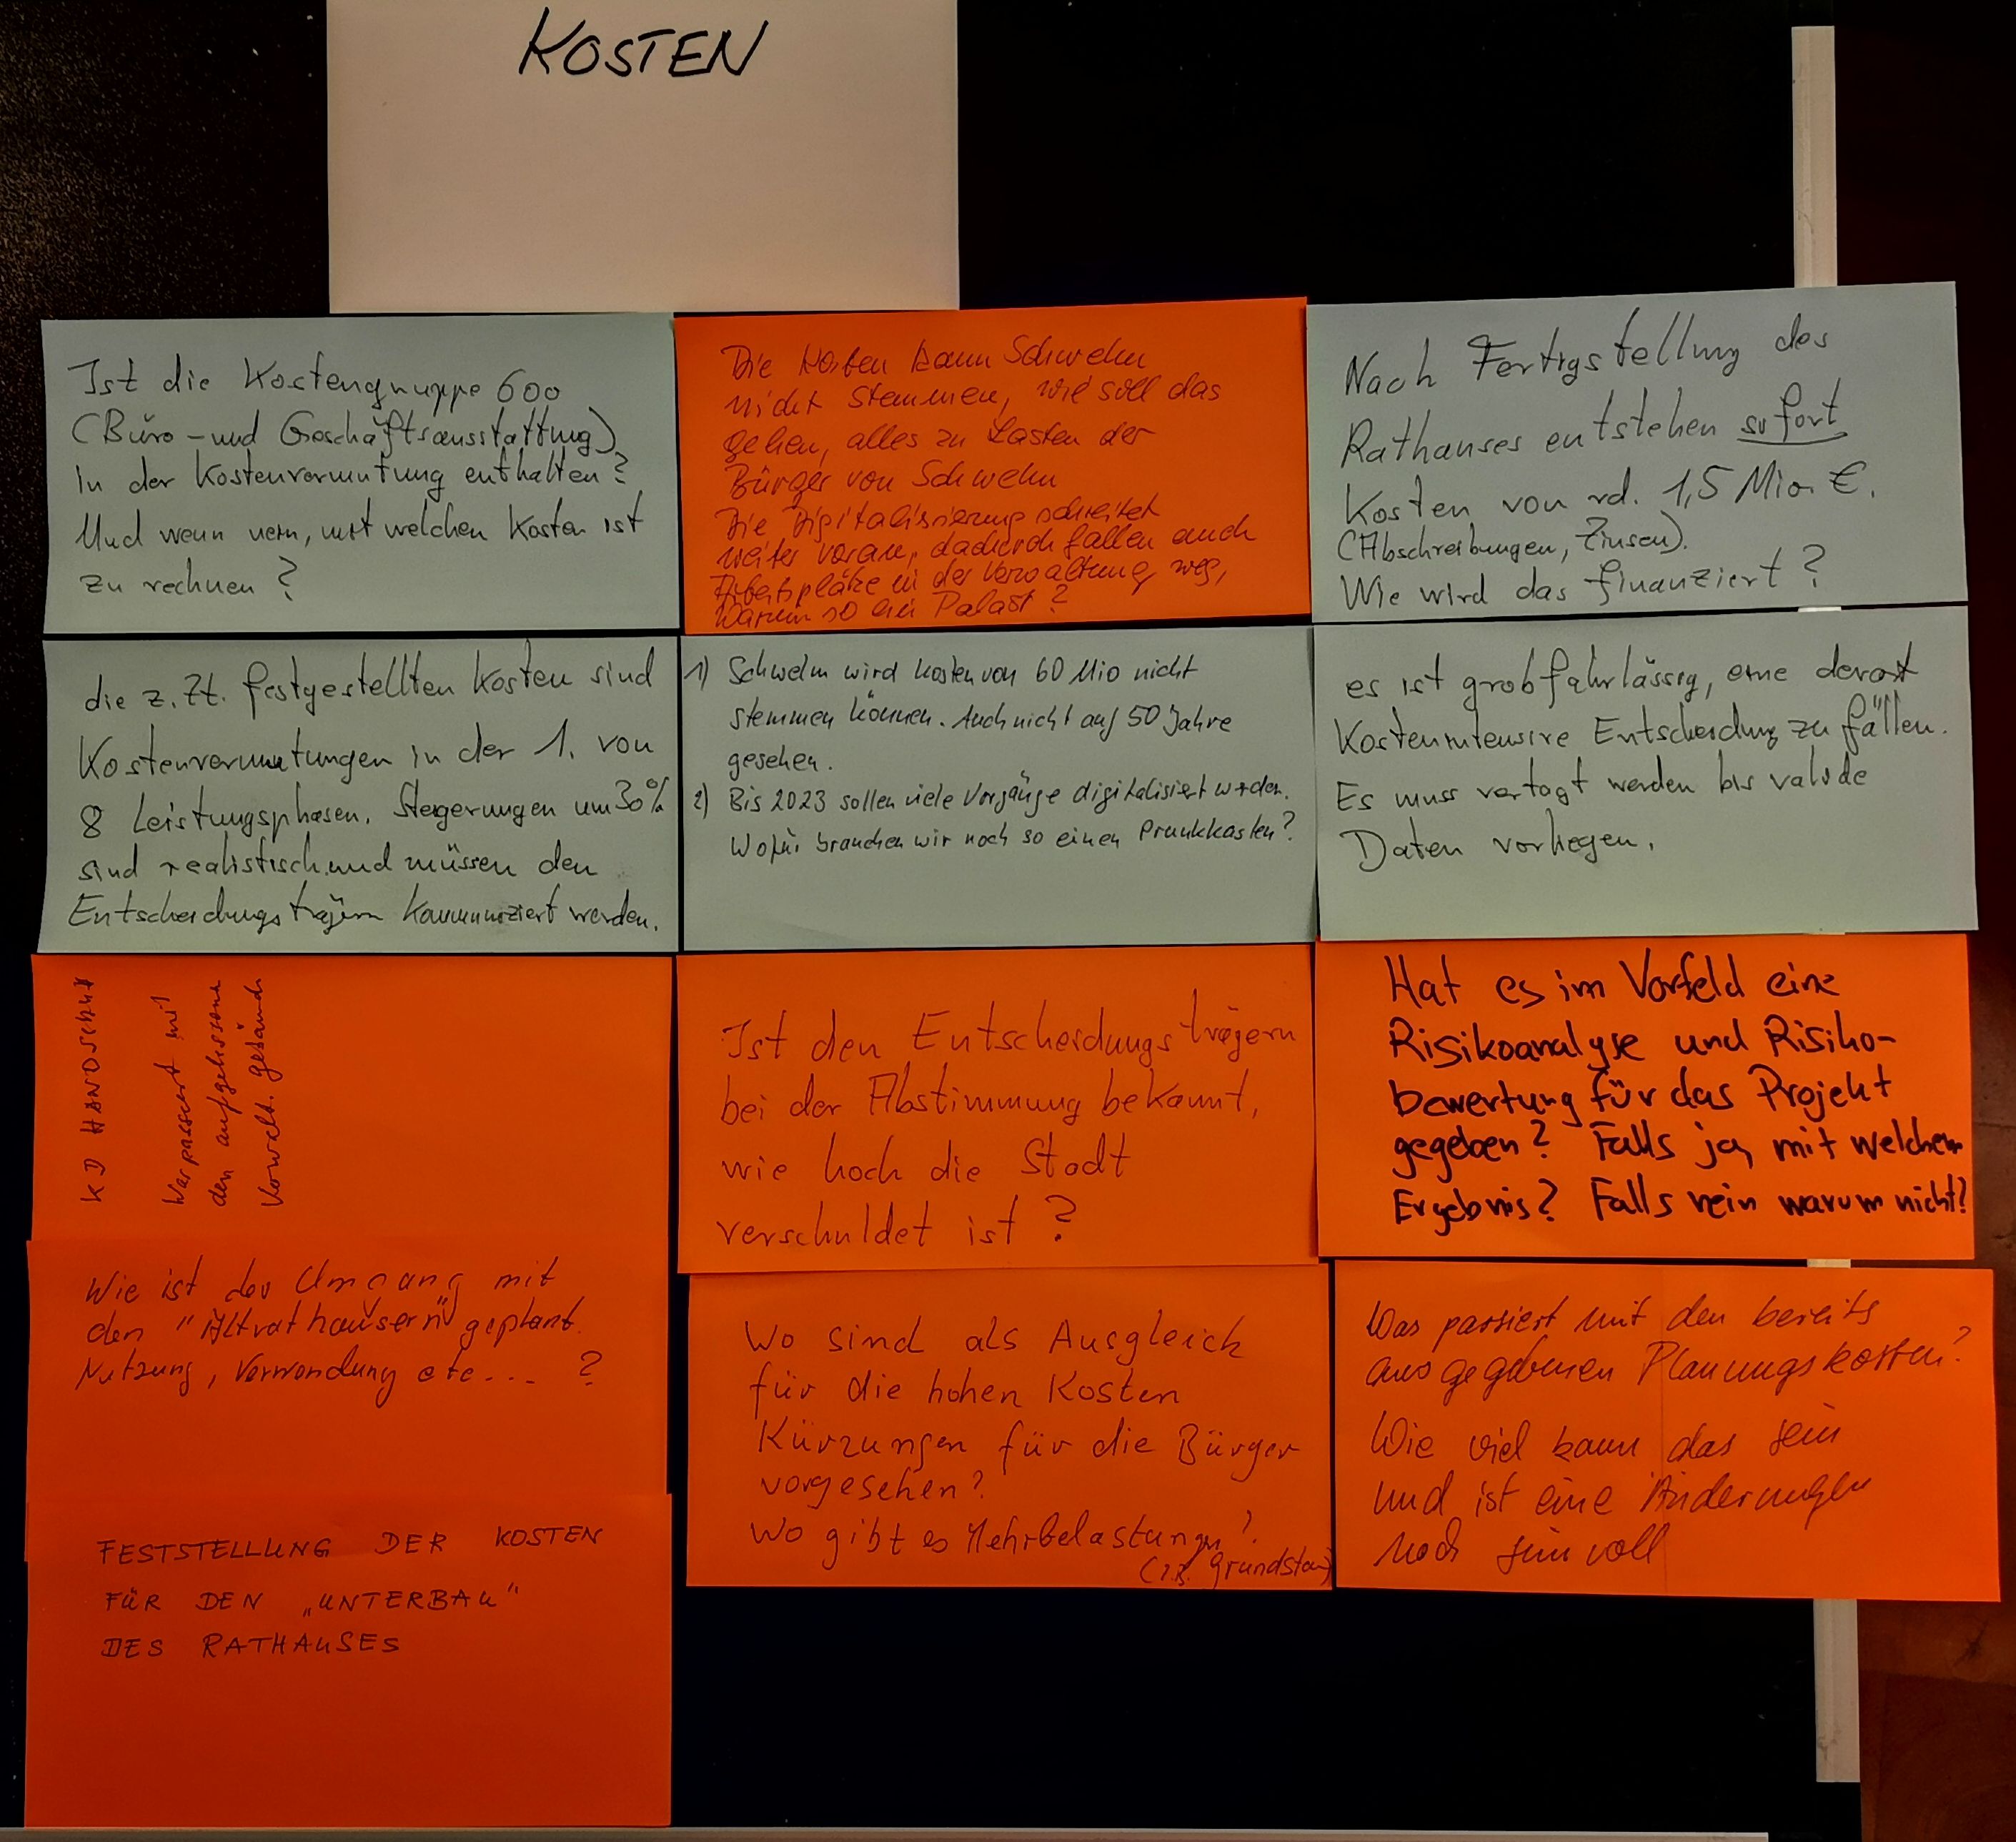 KOSTEN
Ist die Kostengruppe 600
(Büro- und Geschäftsausstattung)
in der Kostenvermutung enthalten?
Und wenn nein, mit welchen Kosten ist
zu rechnen?
Die Kosten kann Schwelm
nicht stemmen, wie soll das
gehen, alles zu Lasten der
Bürger von Schwelm
Die Digitalisierung schreitet
weiter voran, dadurch fallen auch
Arbeitsplätze in der Verwaltung weg,
Warum so ein Palast?
Nach Fertigstellung des
Rathauses entstehen sofort
Kosten von rd. 1,5 Mio. €.
(Abschreibungen, Zinsen).
Wie wird das finanziert?
die z. Zt. festgestellten Kosten sind
Kostenvermutungen in der 1. von
8 Leistungsphasen. Steigerungen um 30%
sind realistisch und müssen den
Entscheidungsträgern kommuniziert werden.
1) Schwelm wird Kosten von 60 Mio nicht
stemmen können. Auch nicht auf 50 Jahre
gesehen.
2) Bis 2023 sollen viele Vorgänge digitalisiert werden.
Wofür brauchen wir noch so einen Prunkkasten?
es ist grobfahrlässig, eine derart
Kostenintensive Entscheidung zu fällen.
Es muss vertagt werden bis valide
Daten vorliegen.
KD
Was passiert mit
den
Verwalt.
Ist den Entscheidungsträgern
bei der Abstimmung bekannt,
wie hoch die Stadt
verschuldet ist?
Hat es im Vorfeld eine
Risikoanalyse und Risiko-
bewertung für das Projekt
gegeben? Falls ja, mit welchem
Ergebnis? Falls nein warum nicht?
Wie ist der Umgang mit
den "Altrathäusern" geplant.
Nutzung, Verwendung etc... ?
Wo sind als Ausgleich
für die hohen Kosten
Kürzungen für die Bürger
vorgesehen?
Wo gibt es Mehrbelastungen?
(z.B. Grundsteu)
Was passiert mit den bereits
ausgegebenen Planungskosten?
Wie viel kann das sein
und ist eine Änderungen
noch sinvoll
FESTSTELLUNG DER KOSTEN
FÜR DEN „UNTERBAU"
DES RATHAUSES